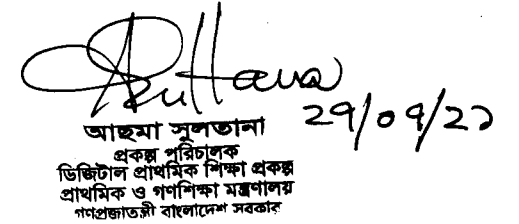 29/09/21
আছমা সুলতানা
প্রকল্প পরিচালক
ডিজিটাল প্রাথমিক শিক্ষা প্রকল্প
প্রাথমিক ও গণশিক্ষা মন্ত্রণালয়
গণপ্রজাতন্ত্রী বাংলাদেশ সরকার